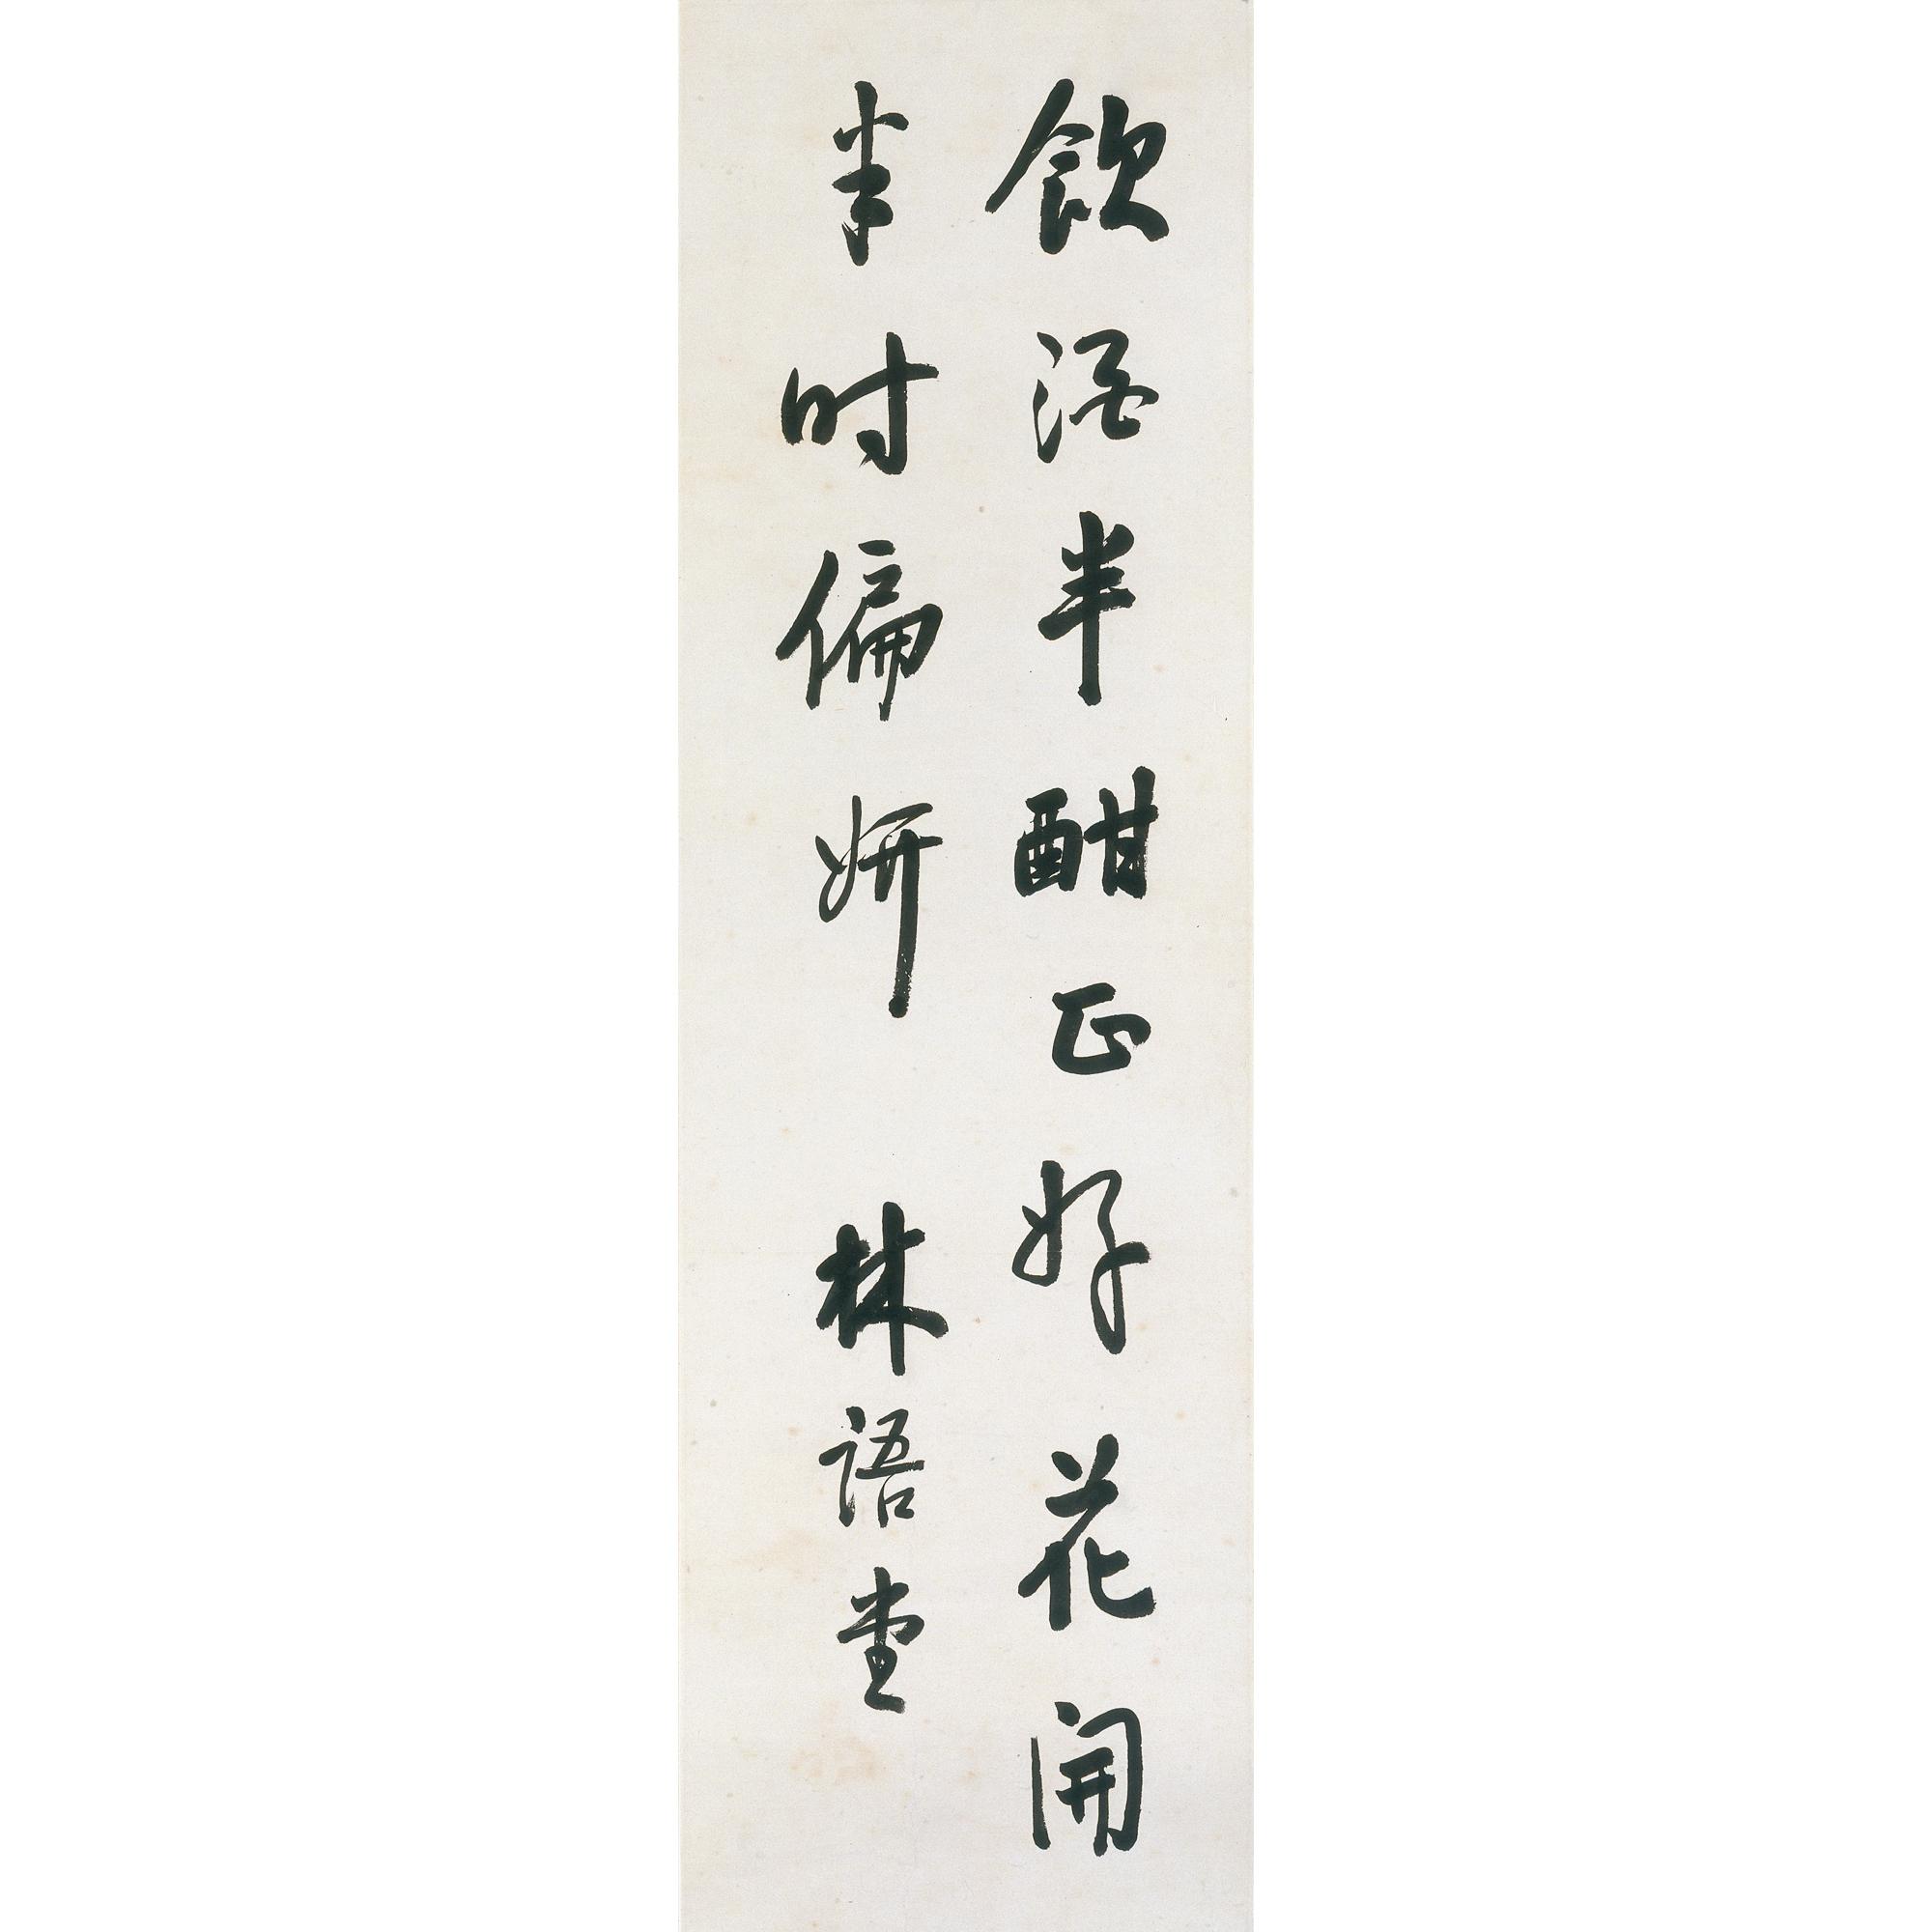 飲酒半酣正好花開
半時偏妍 林語堂